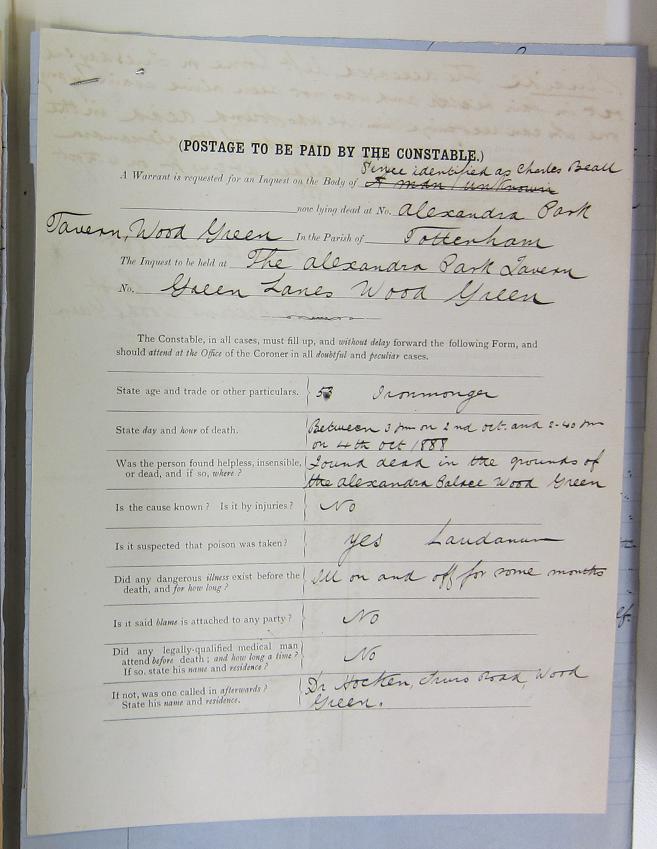 (POSTAGE TO BE PAID BY THE CONSTABLE.)
Since identified as Charles Beall
A Warrant is requested for an Inquest on the Body of A man / unknown
now lying dead at No. Alexandra Park
Tavern, Wood Green In the Parish of Tottenham
The Inquest to be held at The Alexandra Park Tavern
No. Green Lanes Wood Green
The Constable, in all cases, must fill up, and without delay forward the following Form, and
should attend at the Office of the Coroner in all doubtful and peculiar cases.
State age and trade or other particulars. 53 Ironmonger
State day and hour of death. Between 3 pm on 2nd Oct. and 2-40 pm
on 4th Oct 1888
Was the person found helpless, insensible, Found dead in the grounds of
or dead, and if so, where? the Alexandra Palace Wood Green
Is the cause known? Is it by injuries? No
Is it suspected that poison was taken? yes Laudanum
Did any dangerous illness exist before the Ill on and off for some months
death, and for how long?
Is it said blame is attached to any party? No
Did any legally-qualified medical man
attend before death; and how long a time? No
If so, state his name and residence?
If not, was one called in afterwards? Dr Hocken, Road, Wood
State his name and residence. Green.